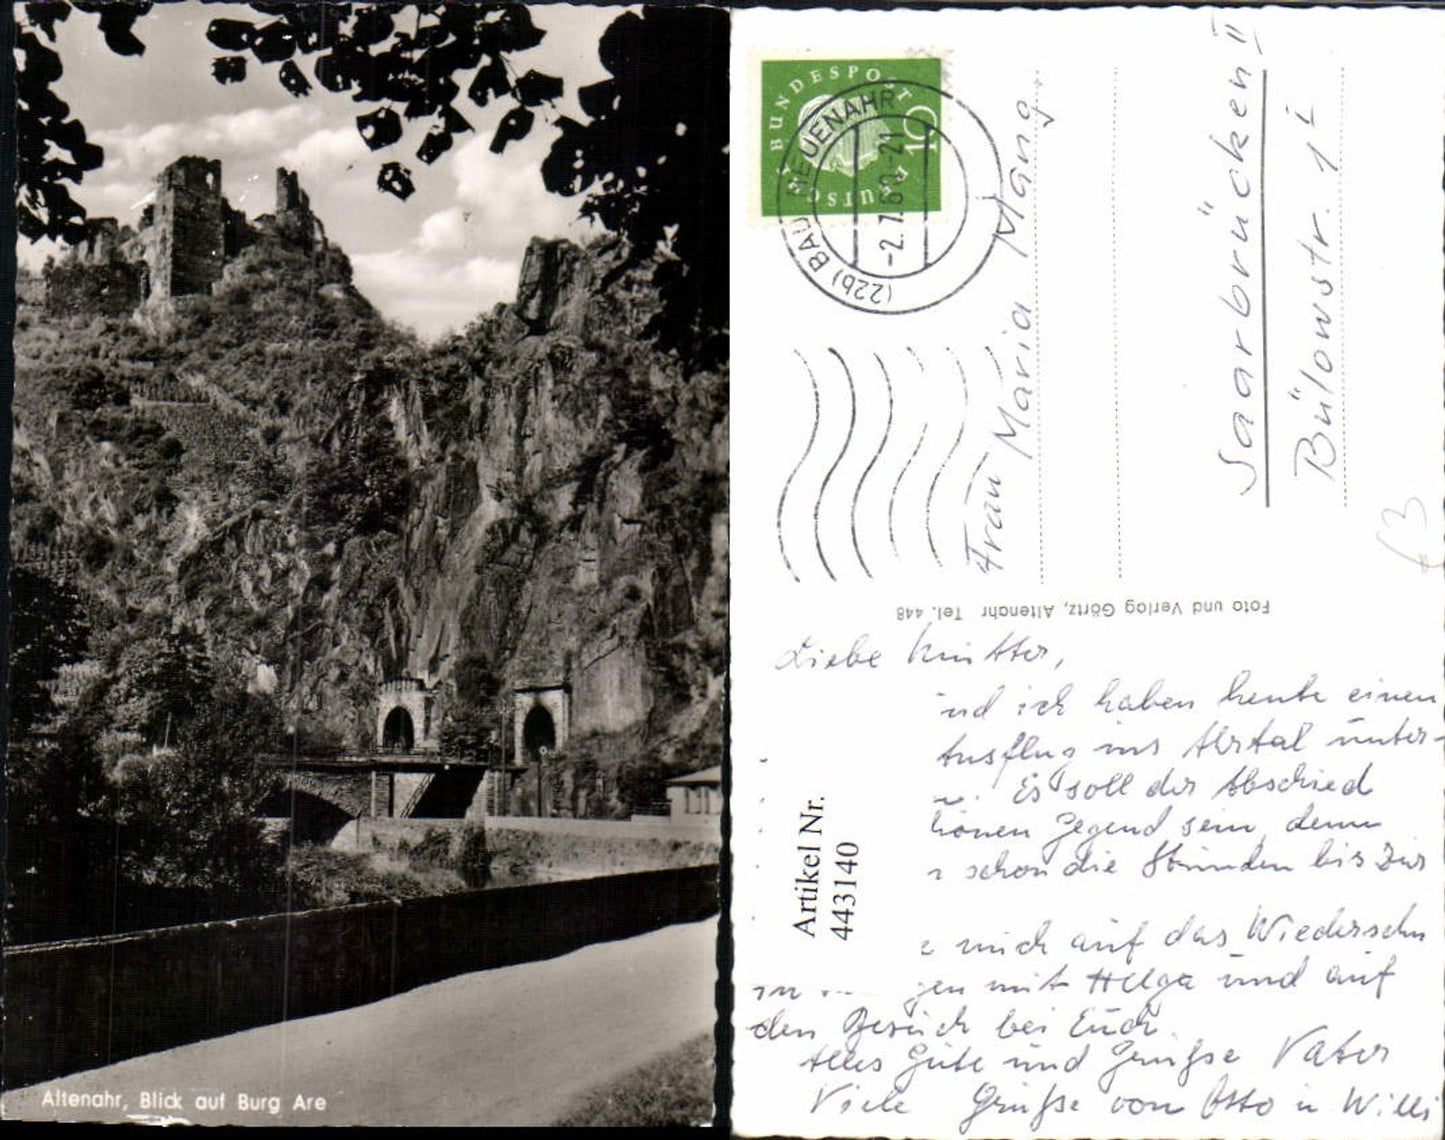 Altenahr, Blick auf Burg Are
DEUTSCHE BUNDESPOST
10
(22b) BAD NEUENAHR
-2.7.60-21
Frau Maria Mang
Saarbrücken II
Bülowstr. 1
Foto und Verlag Görtz, Altenahr Tel. 448
Liebe Mutter,
und ich haben heute einen
Ausflug ins Ahrtal unter-
Es soll der Abschied
hönen Gegend sein, denn
schon die Stunden bis zur
mich auf das Wiedersehn
gen mit Helga und auf
den Besuch bei Euch.
Alles Gute und Grüße Vater
Viele Grüße von Otto u. Willi
Artikel Nr.
443140